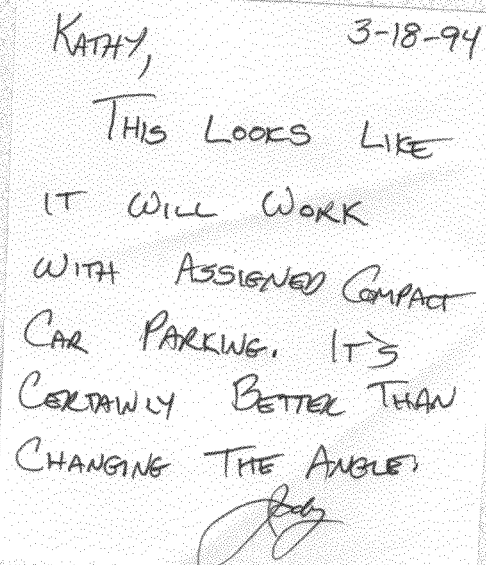 KATHY, 3-18-94
THIS LOOKS LIKE
IT WILL WORK
WITH ASSIGNED COMPACT
CAR PARKING. IT'S
CERTAINLY BETTER THAN
CHANGING THE ANGLE.